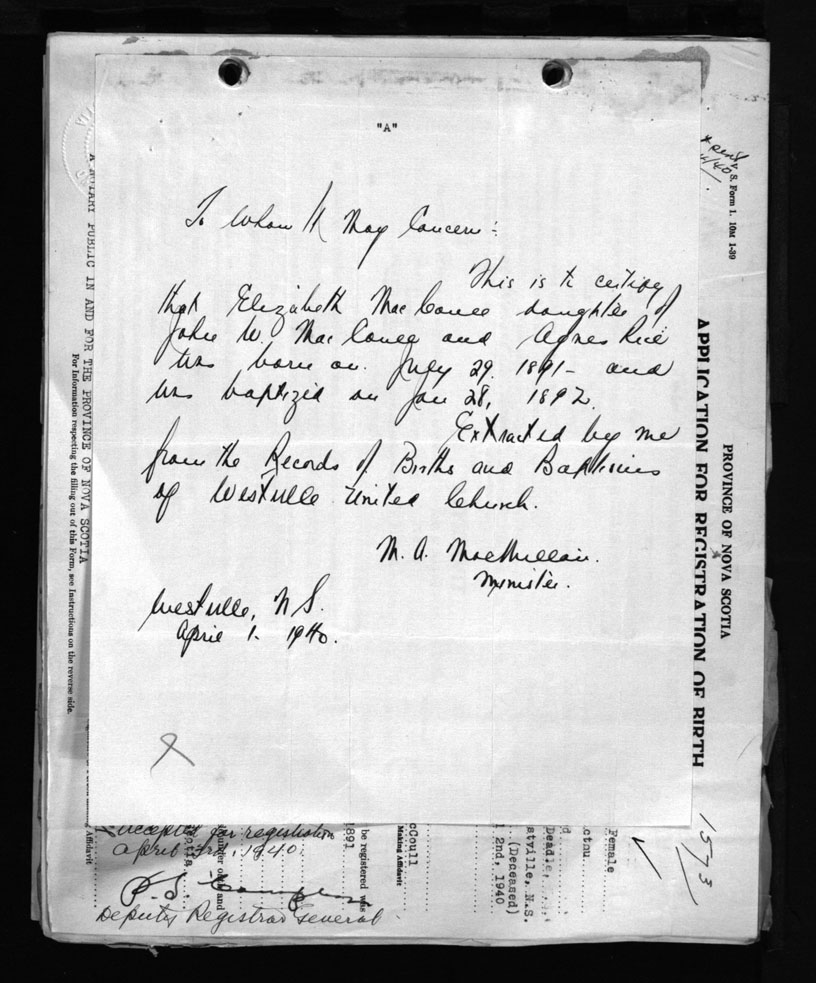 "A"
To Whom It May Concern:-
This is to certify
that Elizabeth Mac daughter of
John W. Mac and Agnes Rice
was born on July 29. 1891- and
was baptized on Jan 28, 1892.
Extracted by me
from the Records of Births and Baptisms
of Westville United Church.
M. A. MacMillan.
Minister.
Westville, N S.
April 1. 1940.
Accepted for registration
April 3rd, 1940.
Deputy Registrar General
be registered was
1891
cCoull
Making Affidavit
Female
Deadle,
stville, N.S.
(Deceased)
2nd, 1940
1573
S. Form 1. 10M 1-39
PROVINCE OF NOVA SCOTIA
APPLICATION FOR REGISTRATION OF BIRTH
A NOTARY PUBLIC IN AND FOR THE PROVINCE OF NOVA SCOTIA
For Information respecting the filling out of this Form, see Instructions on the reverse side.
Affidavit